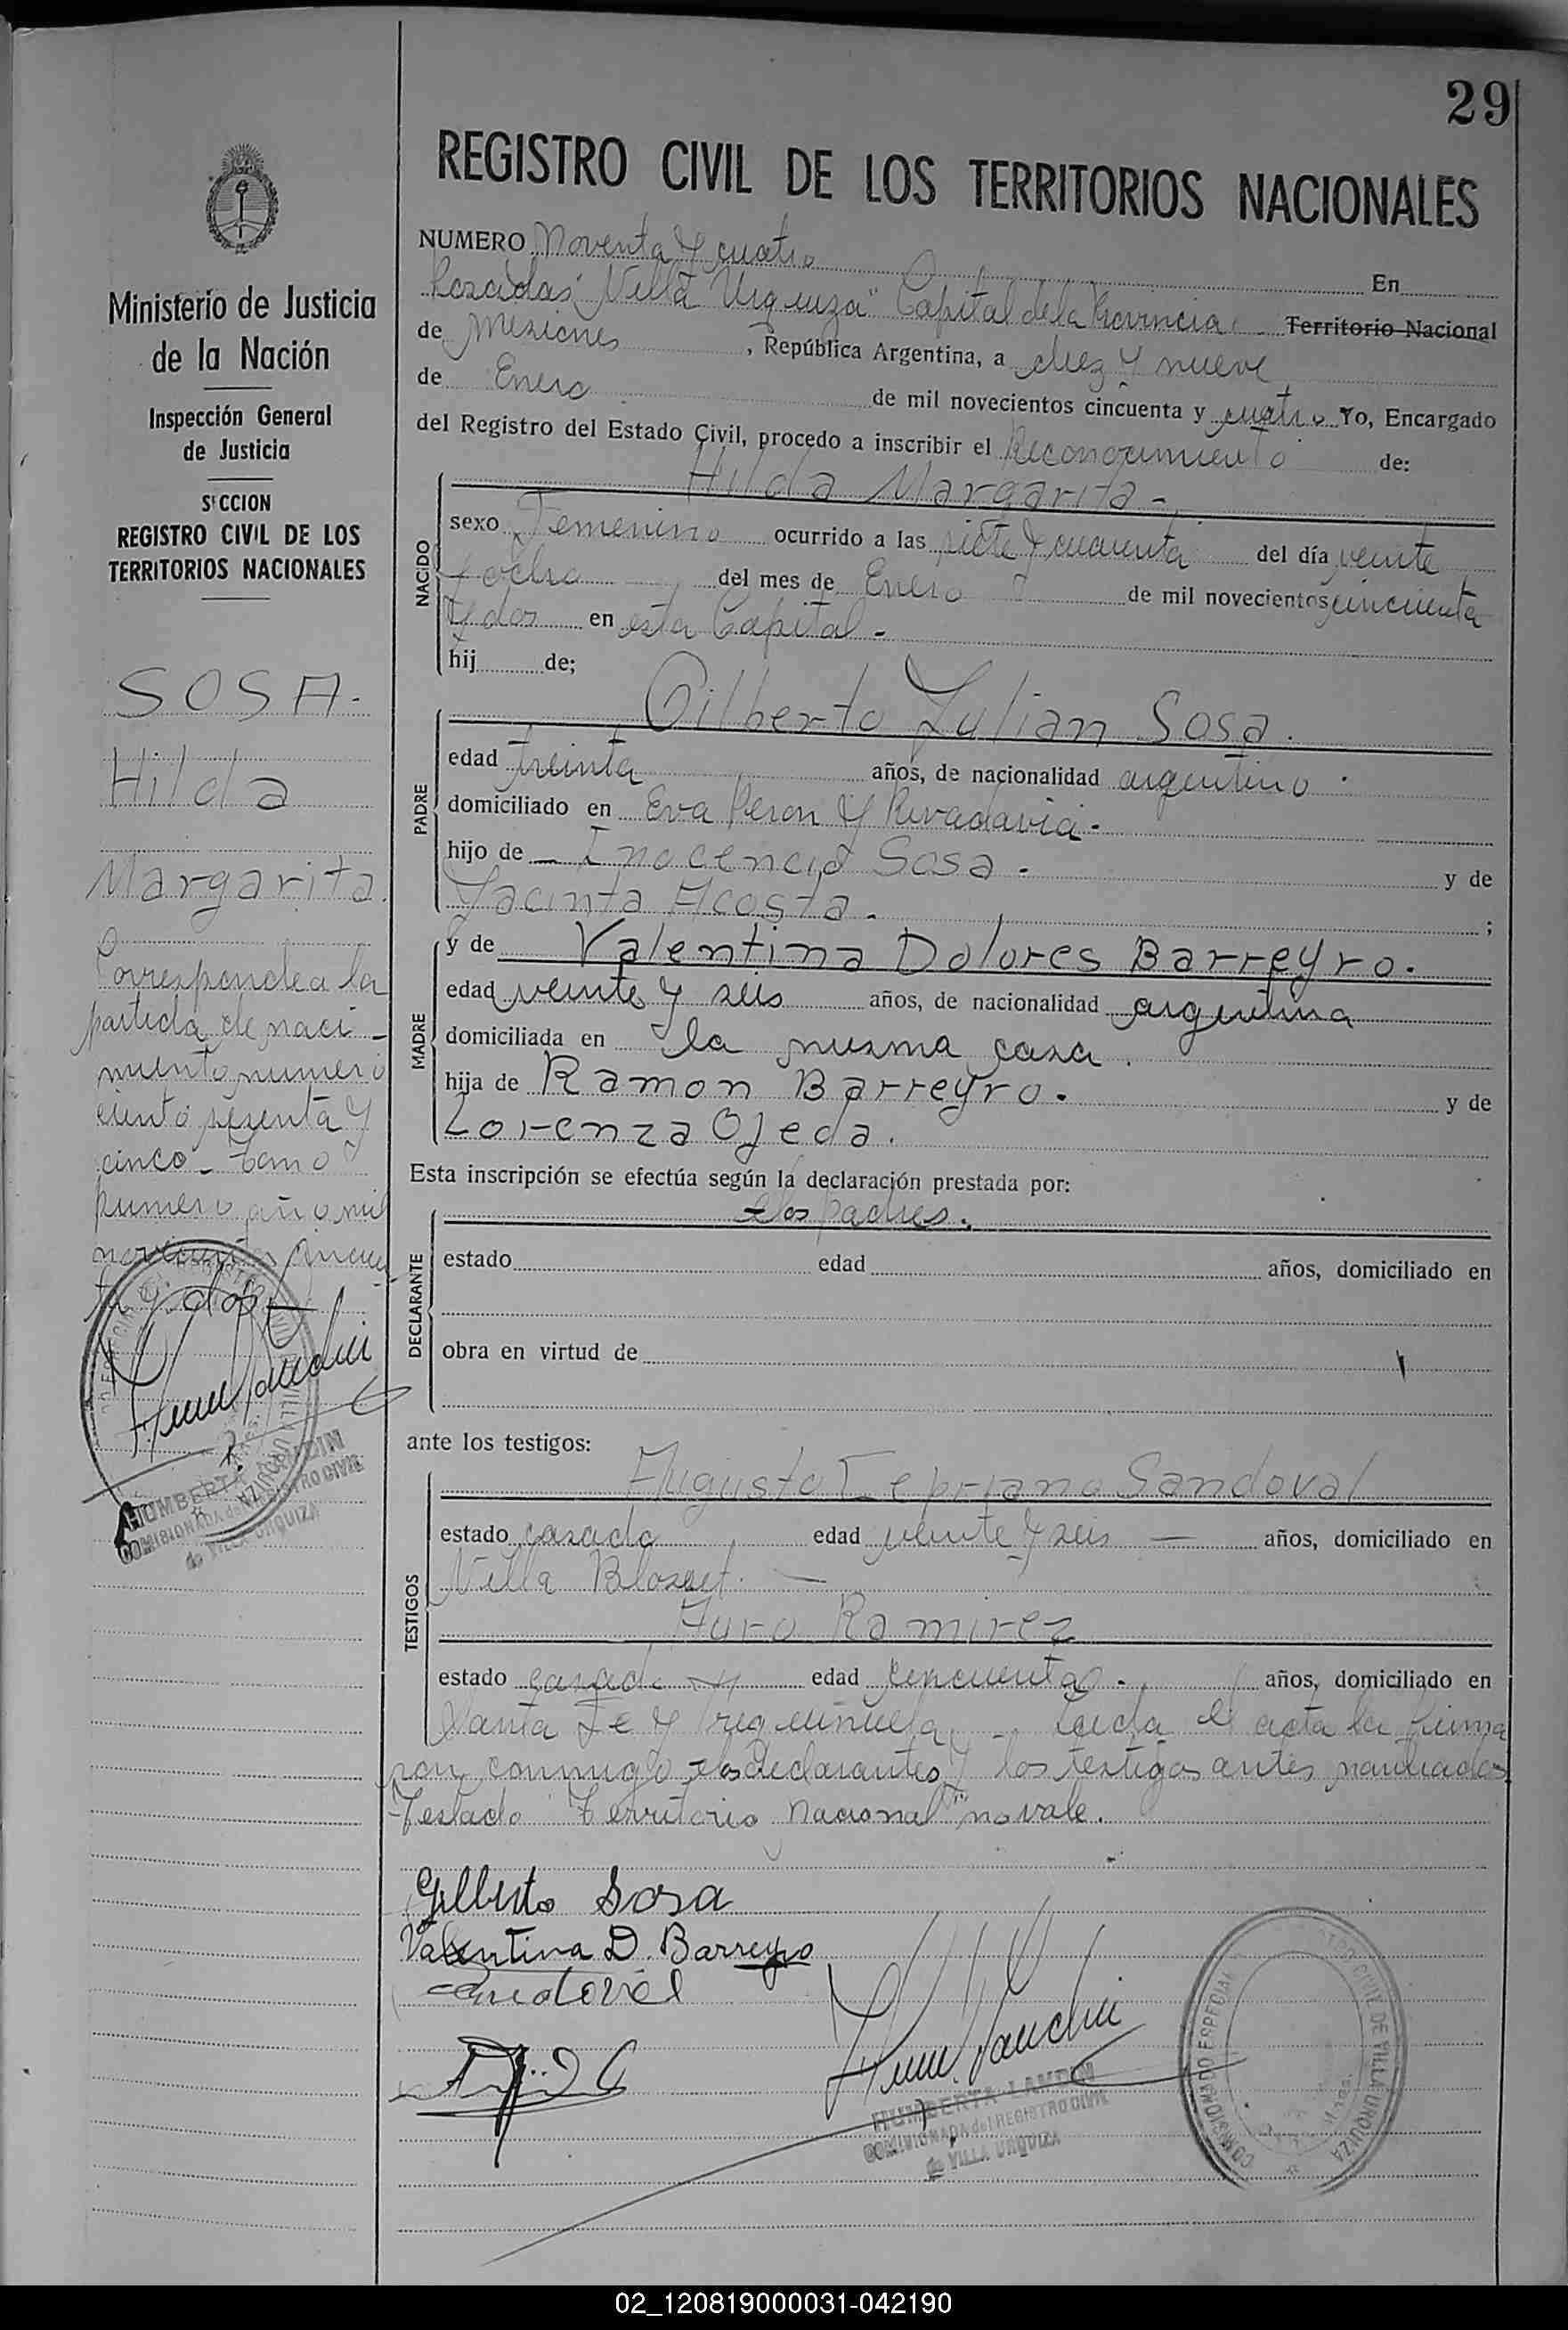 29
REGISTRO CIVIL DE LOS TERRITORIOS NACIONALES
Ministerio de Justicia
de la Nación
Inspección General
de Justicia
SECCION
REGISTRO CIVIL DE LOS
TERRITORIOS NACIONALES
SOSA.
Hilda
Margarita.
Corresponde a la
partida de naci-
miento numero
ciento sesenta y
cinco - tomo
primero año mil
novecientos cincuen
ta y dos
HUMBERTA LANDIN
COMISIONADA del REGISTRO CIVIL
de VILLA URQUIZA
NUMERO Noventa y cuatro En
Posadas "Villa Urquiza" Capital de la Provincia Territorio Nacional
de Misiones, República Argentina, a diez y nueve
de Enero de mil novecientos cincuenta y cuatro Yo, Encargado
del Registro del Estado Civil, procedo a inscribir el Reconocimiento de:
Hilda Margarita -
NACIDO
sexo Femenino ocurrido a las siete y cuarenta del día veinte
y ocho del mes de Enero de mil novecientos cincuenta
y dos en esta Capital -
hij de;
Gilberto Julian Sosa.
PADRE
edad treinta años, de nacionalidad argentino
domiciliado en Eva Peron y Rivadavia -
hijo de - Inocencio Sosa - y de
Jacinta Acosta - ;
MADRE
y de Valentina Dolores Barreyro.
edad veinte y seis años, de nacionalidad argentina
domiciliada en la misma casa.
hija de Ramon Barreyro. y de
Lorenza Ojeda.
Esta inscripción se efectúa según la declaración prestada por:
los padres.
DECLARANTE
estado edad años, domiciliado en
obra en virtud de
ante los testigos:
Augusto Sandoval
TESTIGOS
estado casado edad veinte y seis — años, domiciliado en
Villa
Ramirez
estado casado edad cincuenta - años, domiciliado en
Santa Fe y - Leida el acta la firma
ron conmigo los declarantes y los testigos antes nombrados
Testado "Territorio Nacional" no vale.
Gilberto Sosa
Valentina D. Barreyro
Sandoval
HUMBERTA LANDIN
COMISIONADA del REGISTRO CIVIL
de VILLA URQUIZA
CIVIL DE VILLA URQUIZA
02_120819000031-042190